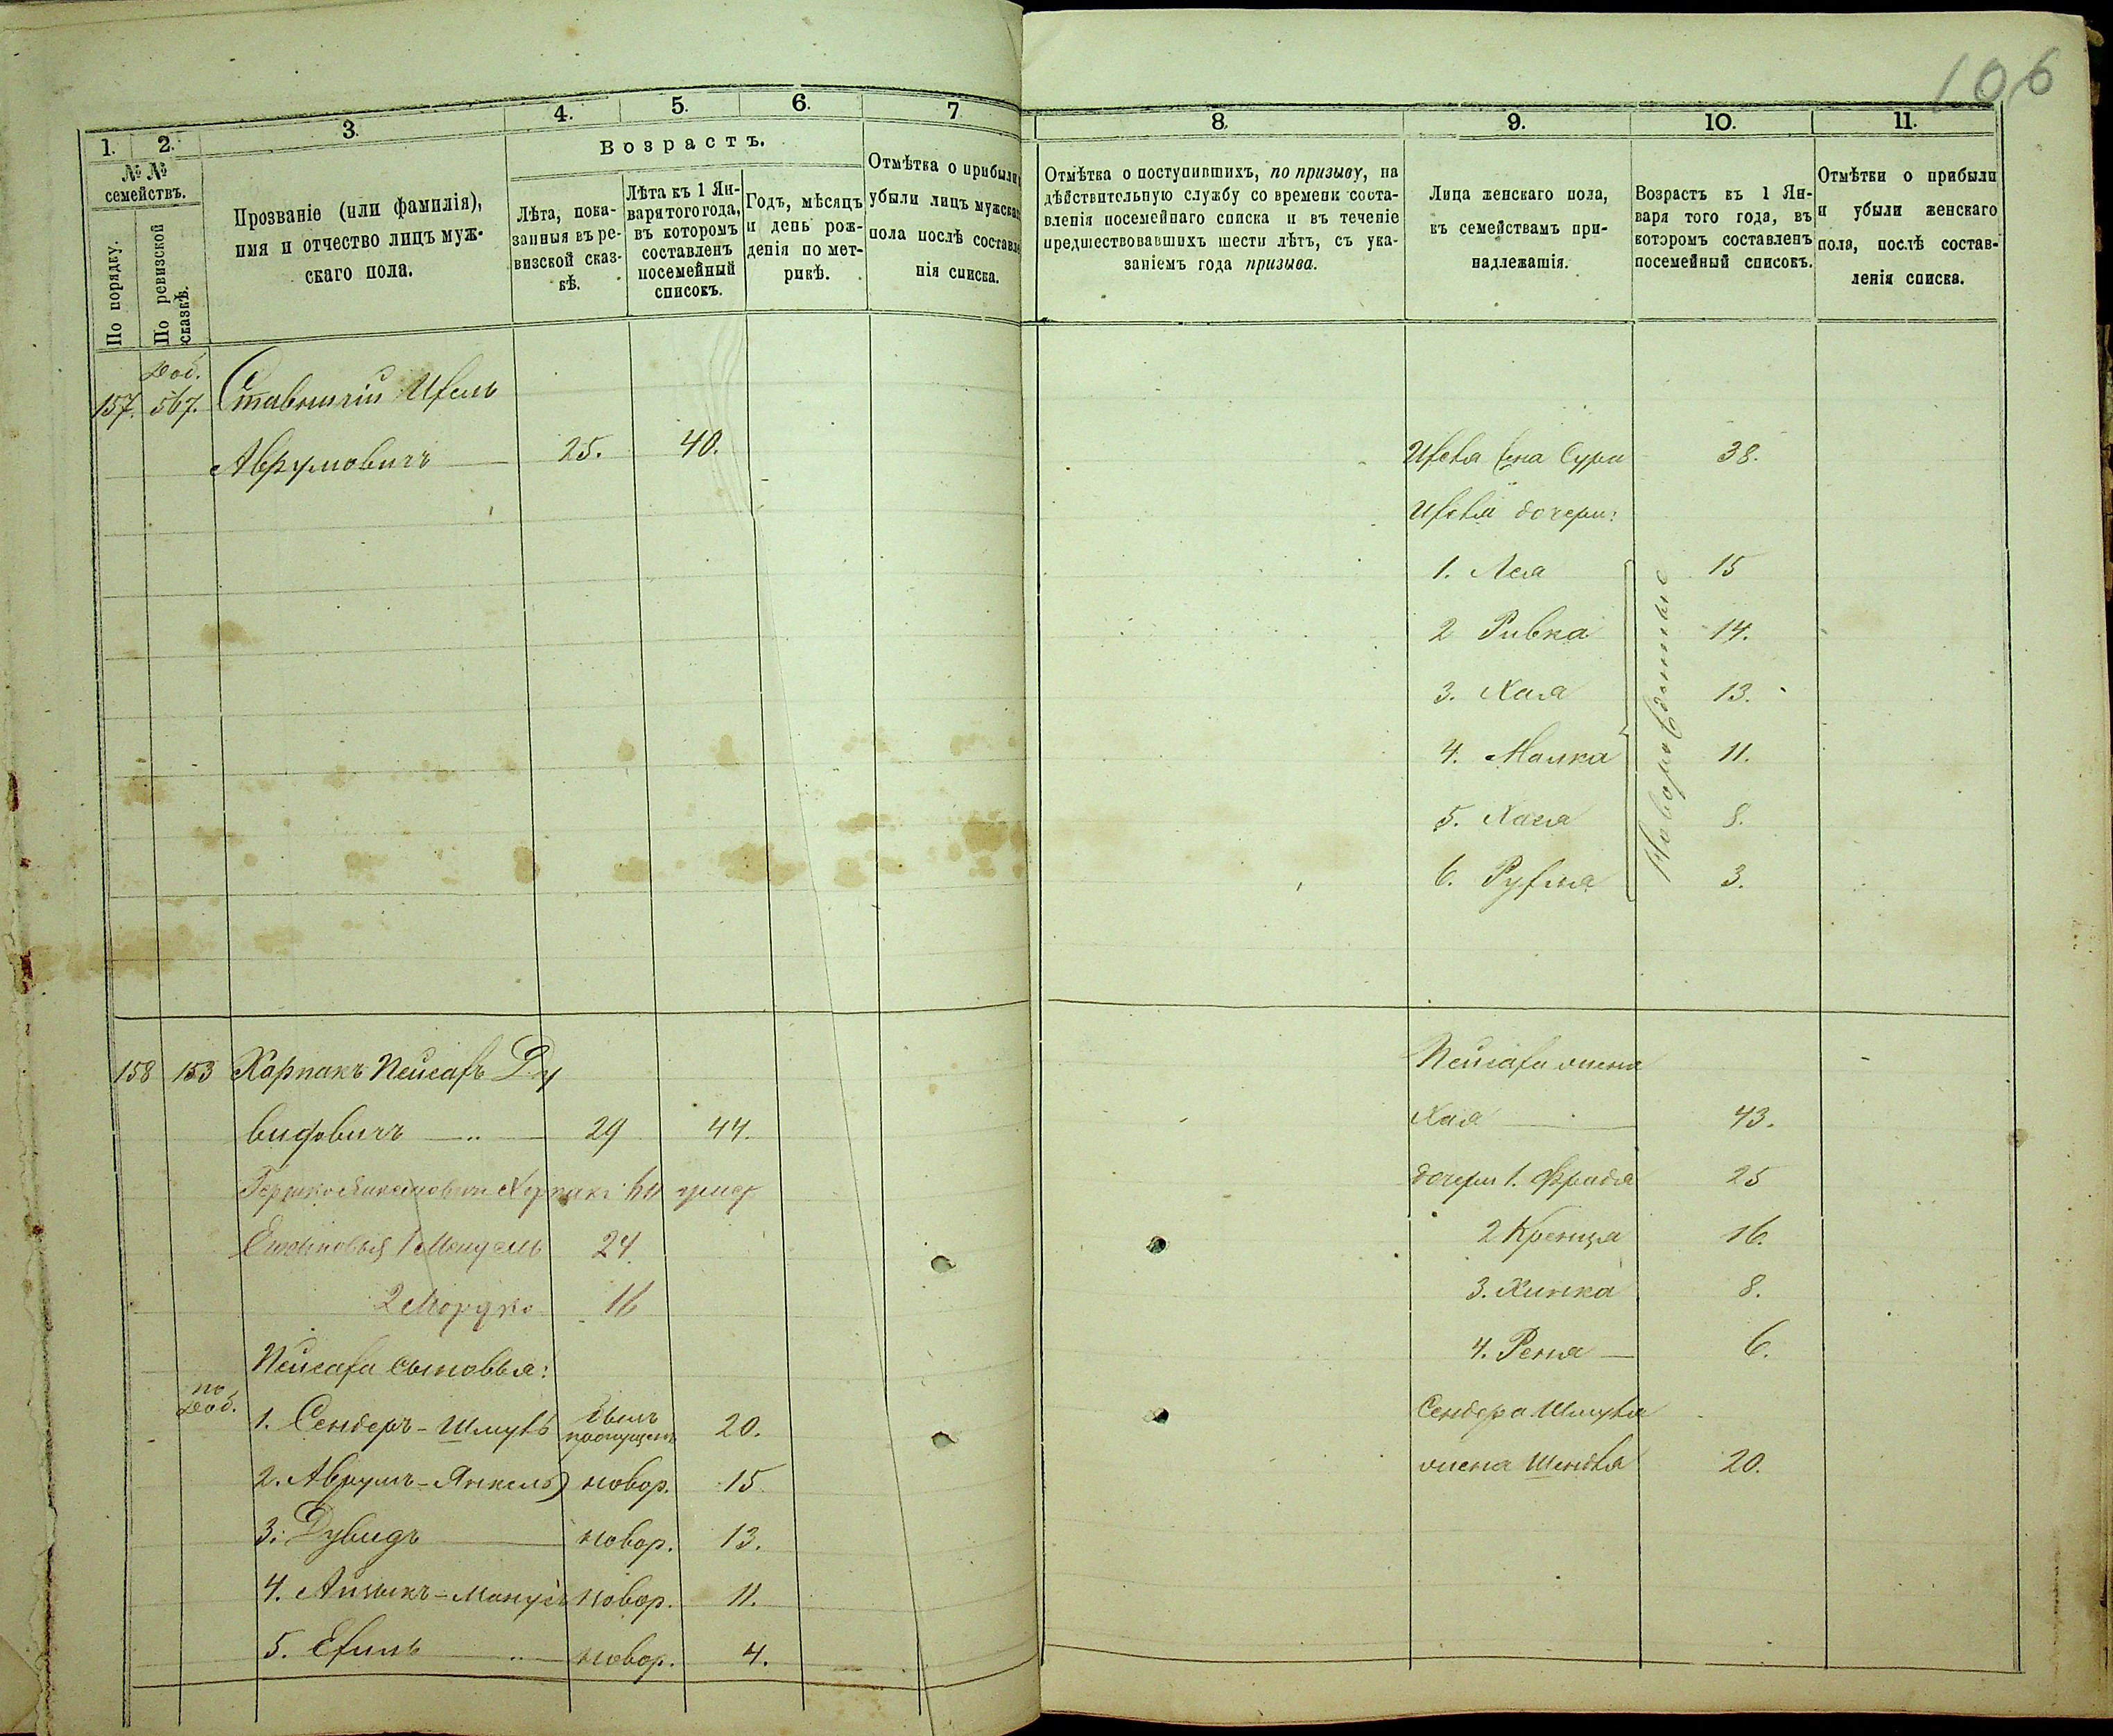 106
1.
2.
3.
4.
5.
6.
7
№ №
семействъ.
По порядку.
По ревизской
сказкѣ.
Прозваніе (или фамилія),
имя и отчество лицъ муж-
скаго пола.
Возрастъ.
Лѣта, пока-
занныя въ ре-
визской сказ-
кѣ.
Лѣта къ 1 Ян-
варя того года,
въ которомъ
составленъ
посемейный
списокъ.
Годъ, мѣсяцъ
и день рож-
денія по мет-
рикѣ.
Отмѣтка о прибыли
убыли лицъ мужска
пола послѣ составле
нія списка.
Доб.
157. 567. Ицель
Аврумовичъ 25. 40.
158 153 Харпакъ Пейсахъ Ду
видовичъ 29 44.
24.
2 Мордко 16
Сыновья:
по
Доб.
1. Сендеръ-Шмуль былъ
пропущенъ 20.
2. Аврумъ-Янкель новор. 15
3. Дувидъ новор. 13.
4. новор. 11.
5. новор. 4.
8.
9.
10.
11.
Отмѣтка о поступившихъ, по призыву, на
дѣйствительную службу со времени соста-
вленія посемейнаго списка и въ теченіе
предшествовавшихъ шести лѣтъ, съ ука-
заніемъ года призыва.
Лица женскаго пола,
къ семействамъ при-
надлежащія.
Возрастъ къ 1 Ян-
варя того года, въ
которомъ составленъ
посемейный списокъ.
Отмѣтки о прибыли
и убыли женскаго
пола, послѣ состав-
ленія списка.
жена Сура 38.
дочери:
1. Лея 15
2 Ривка 14.
3. Хая 13.
4. Малка 11.
5. Хася 8.
6. 3.
Новорожденные
жена
Хая 43.
дочери 1. Фрида 25
2 Кренця 16.
3. Хинка 8.
4. Рейля 6.
Сендера Шмуля
жена Шендля 20.